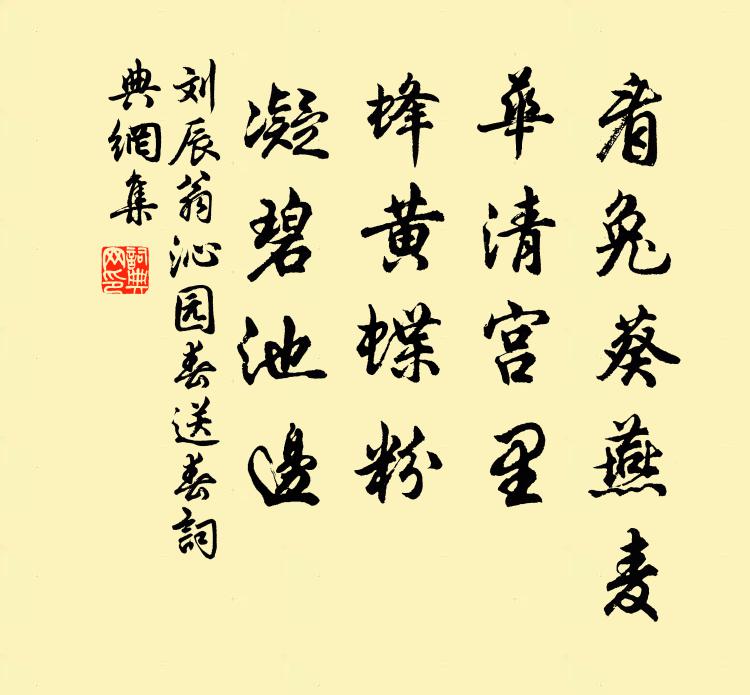 看兔葵燕麦
華清宫里
蜂黄蝶粉
凝碧池邊
刘辰翁沁园春送春詞
典網集
詞典
网印